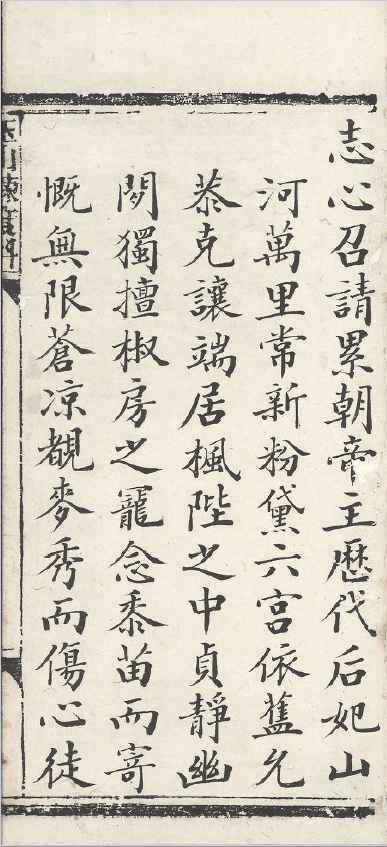 志心召請累朝帝主歷代后妃山
河萬里常新粉黛六宮依舊允
恭克讓端居楓陛之中貞靜幽
閑獨擅椒房之寵念黍苗而寄
慨無限蒼凉覩麥秀而傷心徒